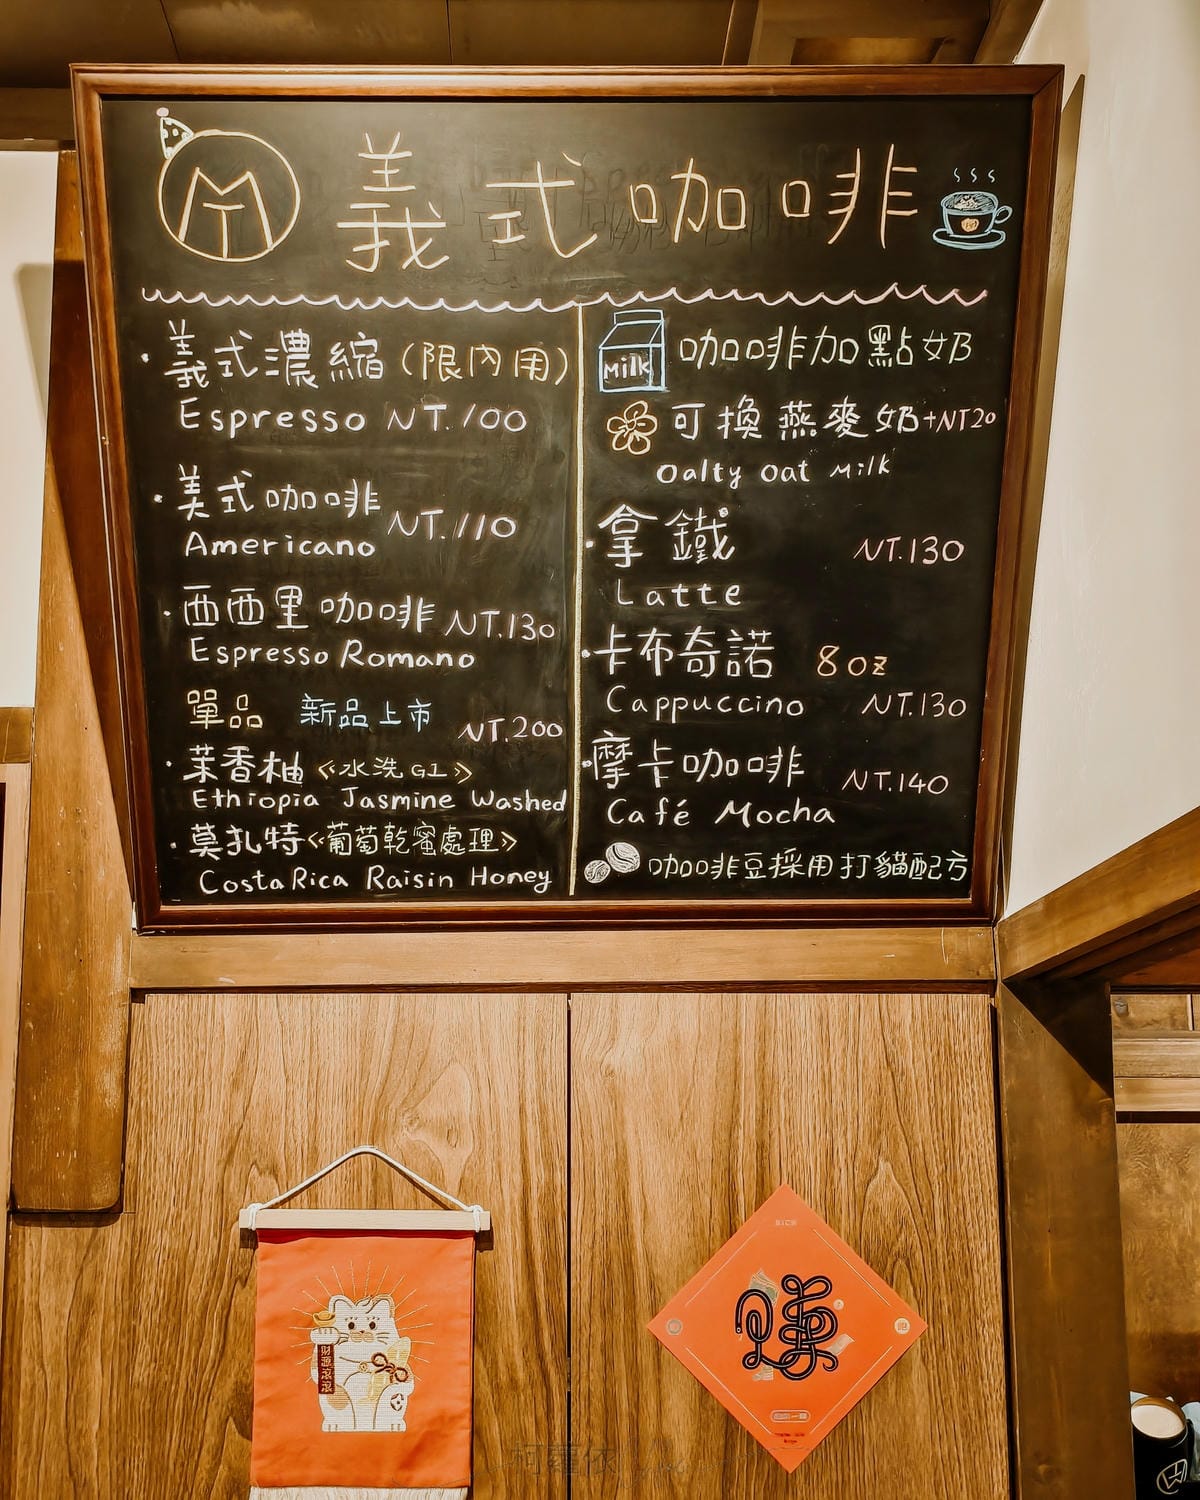 義式咖啡
義式濃縮(限內用)
Espresso NT.100
美式咖啡
Americano
NT.110
西西里咖啡 NT.130
Espresso Romano
單品 新品上市 NT.200
茉香柚《水洗G1》
Ethiopia Jasmine Washed
莫扎特《葡萄乾蜜處理》
Costa Rica Raisin Honey
Milk
咖啡加點奶
可換燕麥奶+NT20
Oalty Oat Milk
拿鐵 NT.130
Latte
卡布奇諾 8oz
Cappuccino NT.130
摩卡咖啡 NT.140
Café Mocha
咖啡豆採用打貓配方
財源滾滾
賺